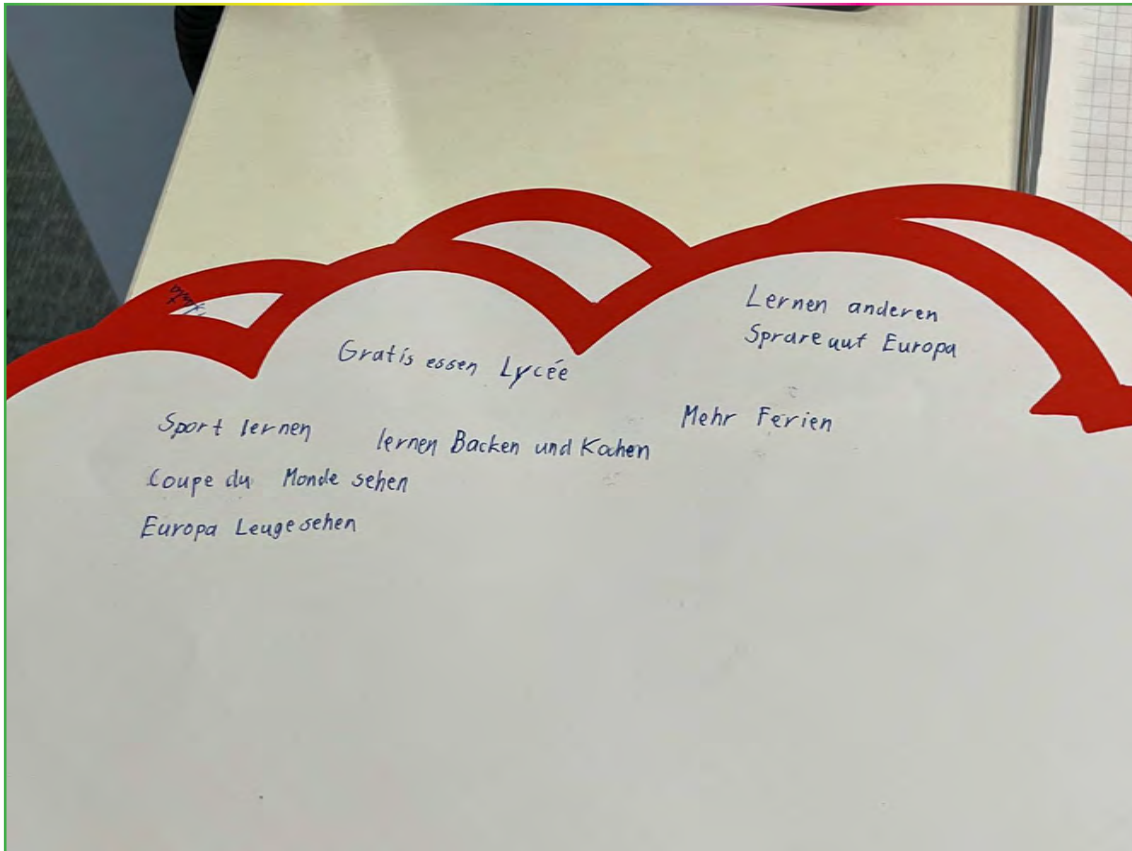 Lernen anderen
Sprare auf Europa
Gratis essen Lycée
Mehr Ferien
Sport lernen
lernen Backen und Kochen
Coupe du Monde sehen
Europa Leuge sehen